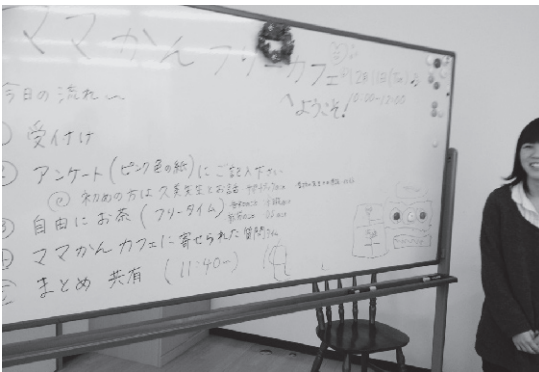 ママかんフリーカフェ
12月1日(土)
10:00-12:00
へようこそ!
今日の流れ〜
① 受付け
② アンケート(ピンク色の紙)にご記入下さい
初めての方は久美先生とお話
③ 自由にお茶(フリータイム)
④ ママかんカフェに寄せられた質問
⑤ まとめ 共有 (11:40〜)